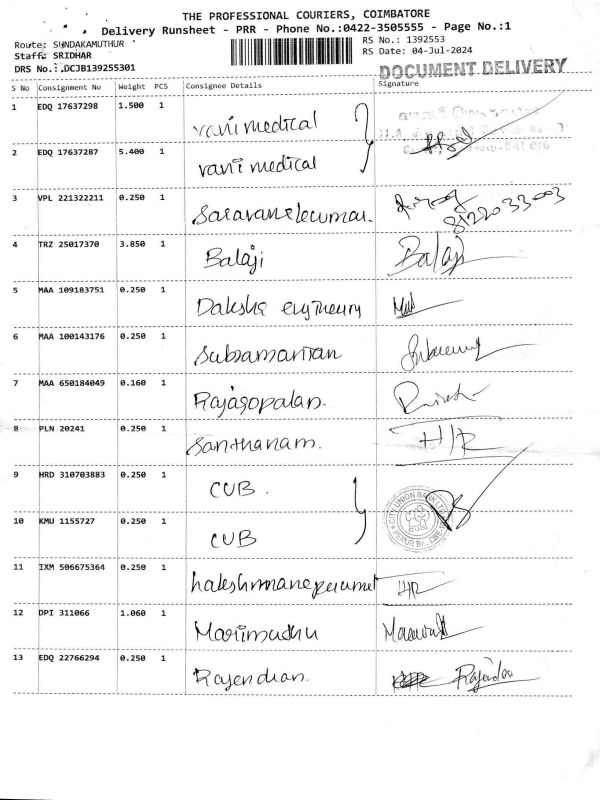 THE PROFESSIONAL COURIERS, COIMBATORE
Delivery Runsheet - PRR - Phone No.:0422-3505555 - Page No.:1
Route: SUNDAKAMUTHUR
RS No.: 1392553
Staff: SRIDHAR
RS Date: 04-Jul-2024
DRS No.: DCJB139255301
DOCUMENT DELIVERY
S No Consignment No Weight PCS Consignee Details Signature
1 EDQ 17637298 1.500 1 vani medical
2 EDQ 17637287 5.400 1 vani medical
3 VPL 221322211 0.250 1 Saravanakumar. 8122033003
4 TRZ 25017370 3.850 1 Balaji Balaji
5 MAA 109183751 0.250 1 Daksha
6 MAA 100143176 0.250 1 Subramanian
7 MAA 650184049 0.160 1 Rajagopalan.
8 PLN 20241 0.250 1 Santhanam. H/R
9 HRD 310703883 0.250 1 CUB.
CITY UNION BANK LTD
10 KMU 1155727 0.250 1 CUB
11 IXM 506675364 0.250 1 H/R
12 DPI 311066 1.060 1 Marimuthu
13 EDQ 22766294 0.250 1 Rajendran.